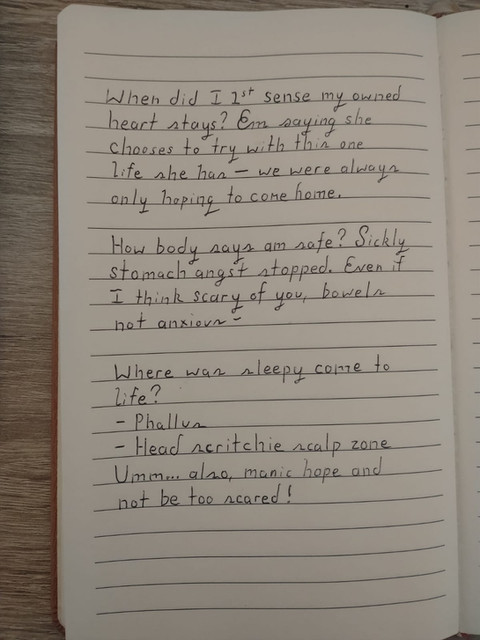 When did I 1st sense my owned
heart stays? Em saying she
chooses to try with this one
life she has — we were always
only hoping to come home.
How body says am safe? Sickly
stomach angst stopped. Even if
I think scary of you, bowels
not anxious –
Where was sleepy come to
life?
- Phallus
- Head scritchie scalp zone
Umm... also, manic hope and
not be too scared!